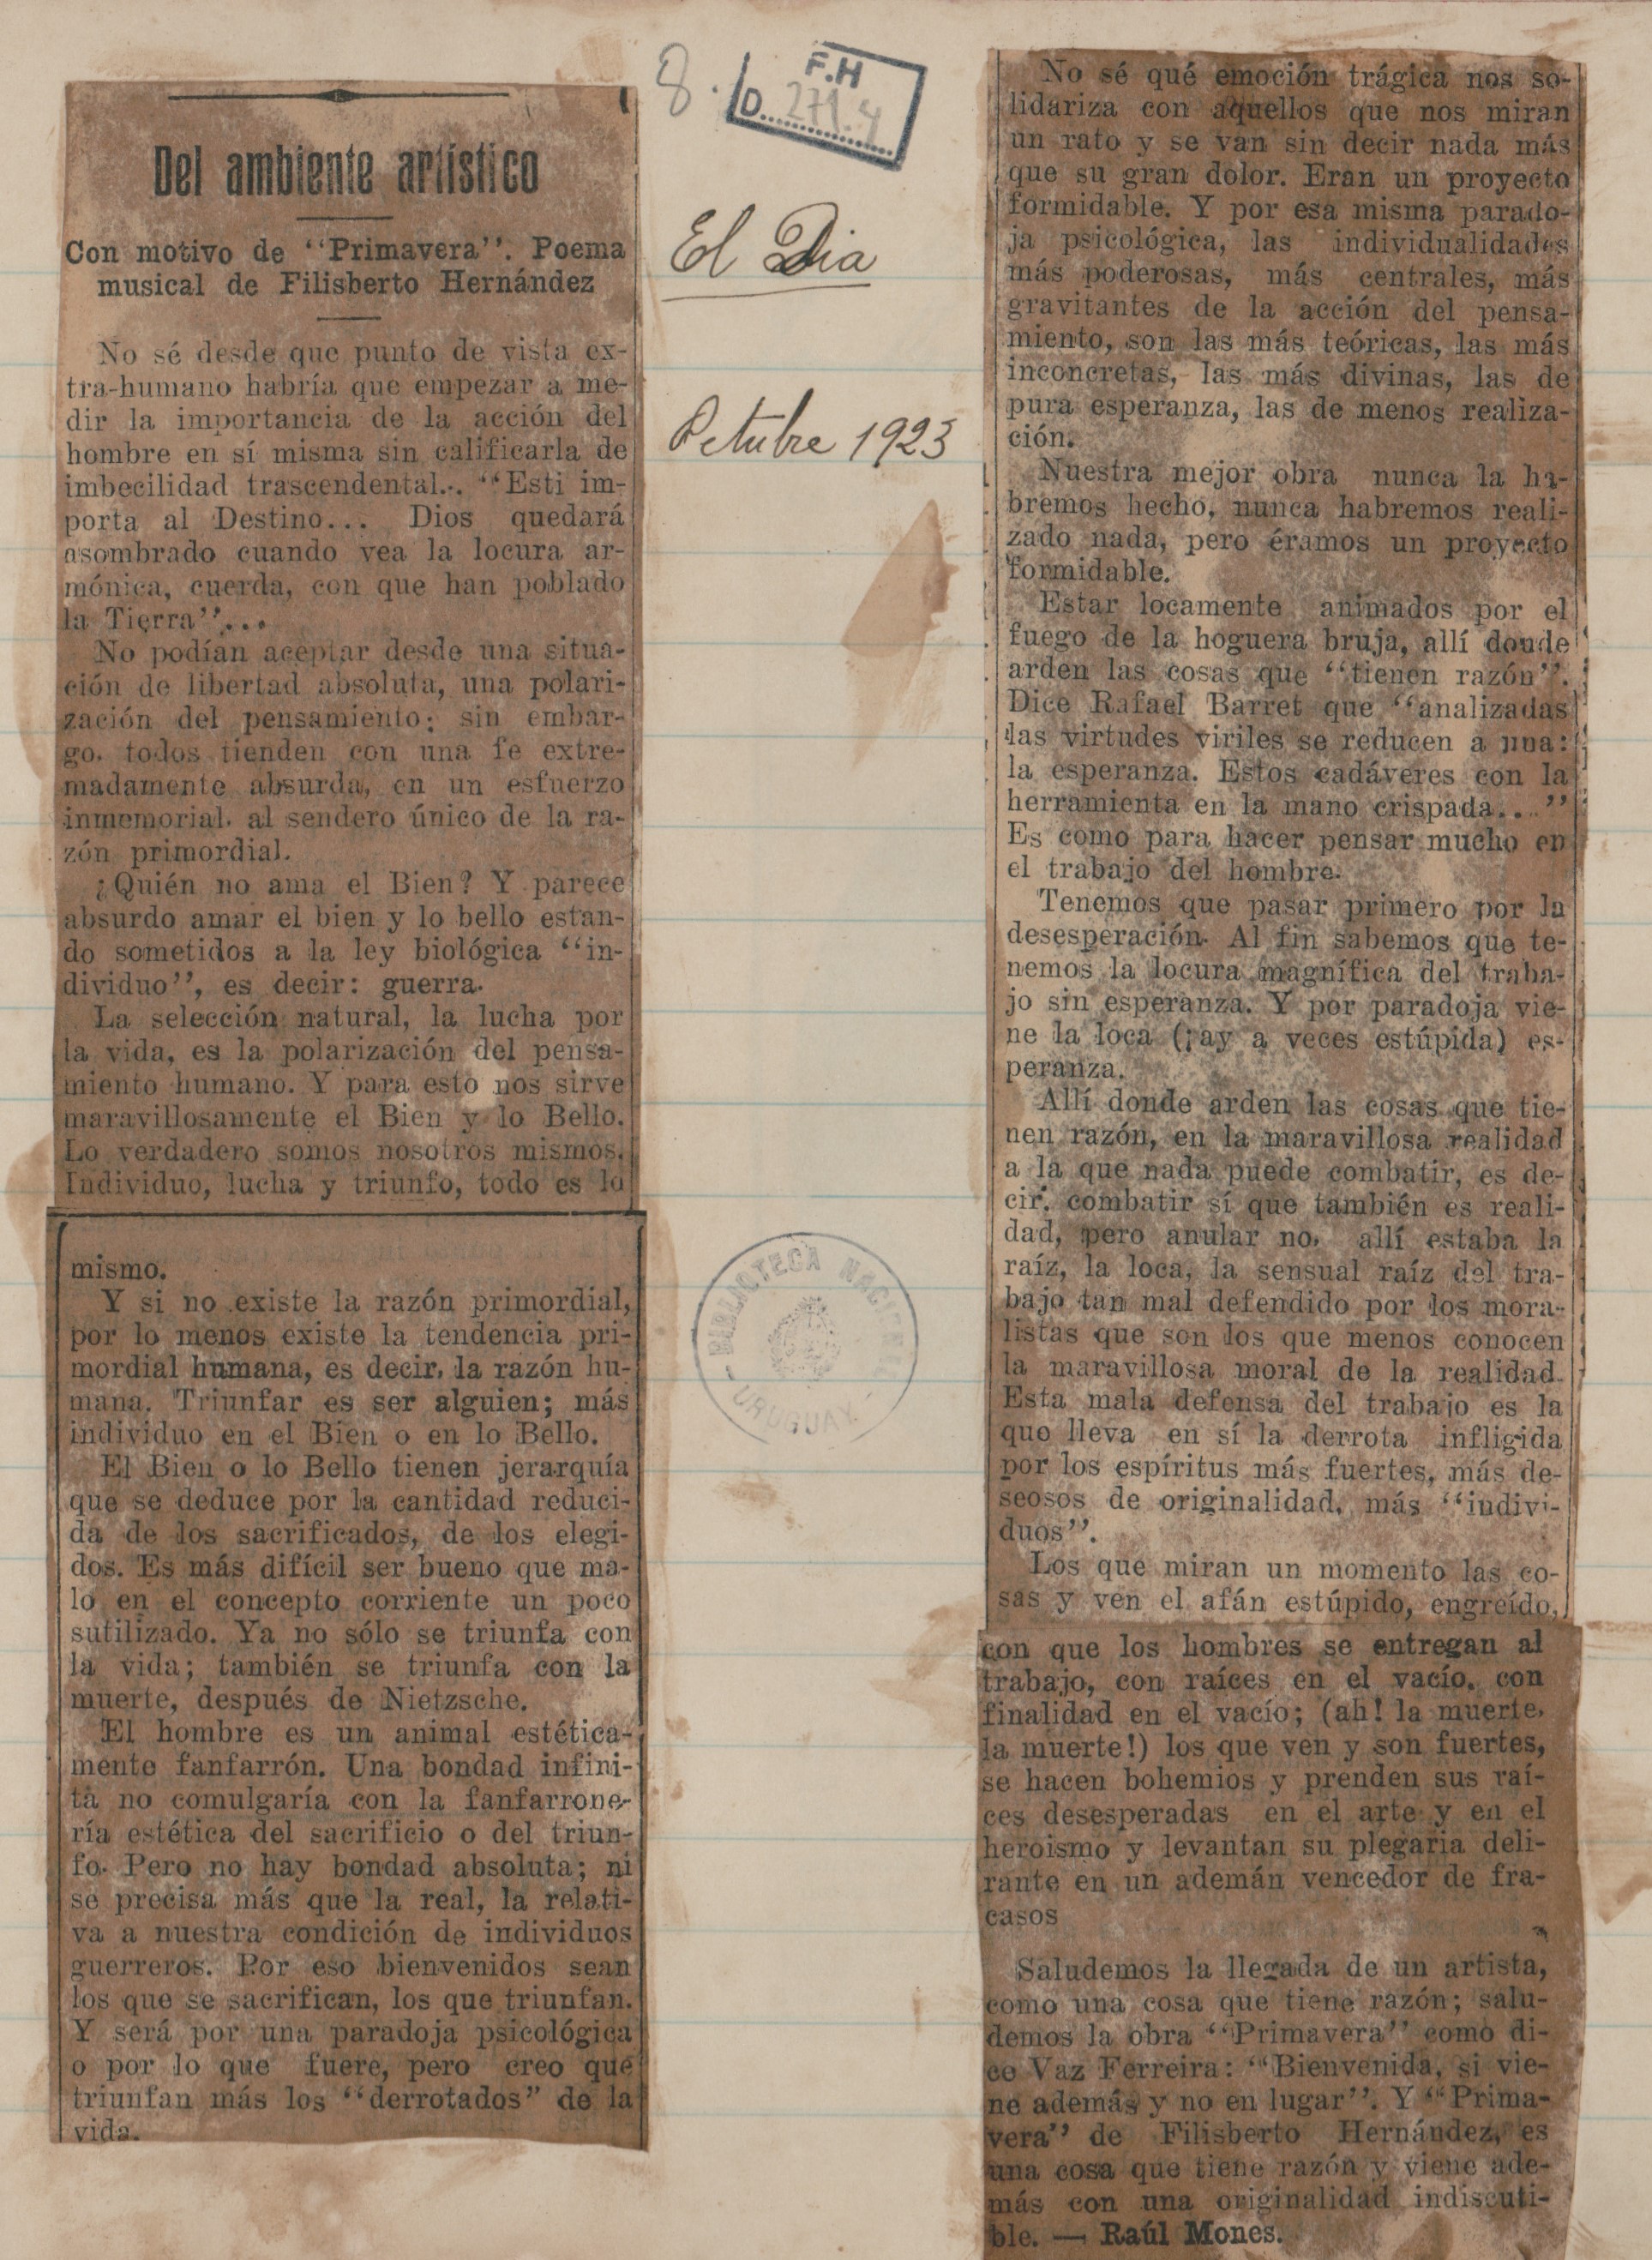 8.
F.H
D. 271.4
El Dia
Octubre 1923
Del ambiente artístico
Con motivo de "Primavera". Poema
musical de Filisberto Hernández
No sé desde que punto de vista ex-
tra-humano habría que empezar a me-
dir la importancia de la acción del
hombre en sí misma sin calificarla de
imbecilidad trascendental... "Esti im-
porta al Destino... Dios quedará
asombrado cuando vea la locura ar-
mónica, cuerda, con que han poblado
la Tierra"...
No podían aceptar desde una situa-
ción de libertad absoluta, una polari-
zación del pensamiento; sin embar-
go, todos tienden con una fe extre-
madamente absurda, en un esfuerzo
inmemorial, al sendero único de la ra-
zón primordial.
¿Quién no ama el Bien? Y parece
absurdo amar el bien y lo bello estan-
do sometidos a la ley biológica "in-
dividuo", es decir: guerra.
La selección natural, la lucha por
la vida, es la polarización del pensa-
miento humano. Y para esto nos sirve
maravillosamente el Bien y lo Bello.
Lo verdadero somos nosotros mismos.
Individuo, lucha y triunfo, todo es lo
mismo.
Y si no existe la razón primordial,
por lo menos existe la tendencia pri-
mordial humana, es decir, la razón hu-
mana. Triunfar es ser alguien; más
individuo en el Bien o en lo Bello.
El Bien o lo Bello tienen jerarquía
que se deduce por la cantidad reduci-
da de los sacrificados, de los elegi-
dos. Es más difícil ser bueno que ma-
lo en el concepto corriente un poco
sutilizado. Ya no sólo se triunfa con
la vida; también se triunfa con la
muerte, después de Nietzsche.
El hombre es un animal estética-
mente fanfarrón. Una bondad infini-
ta no comulgaría con la fanfarrone-
ría estética del sacrificio o del triun-
fo. Pero no hay bondad absoluta; ni
se precisa más que la real, la relati-
va a nuestra condición de individuos
guerreros. Por eso bienvenidos sean
los que se sacrifican, los que triunfan.
Y será por una paradoja psicológica
o por lo que fuere, pero creo que
triunfan más los "derrotados" de la
vida.
No sé qué emoción trágica nos so-
lidariza con aquellos que nos miran
un rato y se van sin decir nada más
que su gran dolor. Eran un proyecto
formidable. Y por esa misma parado-
ja psicológica, las individualidades
más poderosas, más centrales, más
gravitantes de la acción del pensa-
miento, son las más teóricas, las más
inconcretas, las más divinas, las de
pura esperanza, las de menos realiza-
ción.
Nuestra mejor obra nunca la ha-
bremos hecho, nunca habremos reali-
zado nada, pero éramos un proyecto
formidable.
Estar locamente animados por el
fuego de la hoguera bruja, allí donde
arden las cosas que "tienen razón".
Dice Rafael Barret que "analizadas
las virtudes viriles se reducen a una:
la esperanza. Estos cadáveres con la
herramienta en la mano crispada..."
Es como para hacer pensar mucho en
el trabajo del hombre.
Tenemos que pasar primero por la
desesperación. Al fin sabemos que te-
nemos la locura magnífica del traba-
jo sin esperanza. Y por paradoja vie-
ne la loca (¡ay a veces estúpida) es-
peranza.
Allí donde arden las cosas que tie-
nen razón, en la maravillosa realidad
a la que nada puede combatir, es de-
cir, combatir sí que también es reali-
dad, pero anular no, allí estaba la
raíz, la loca, la sensual raíz del tra-
bajo tan mal defendido por los mora-
listas que son los que menos conocen
la maravillosa moral de la realidad.
Esta mala defensa del trabajo es la
que lleva en sí la derrota infligida
por los espíritus más fuertes, más de-
seosos de originalidad, más "indivi-
duos".
Los que miran un momento las co-
sas y ven el afán estúpido, engreído,
con que los hombres se entregan al
trabajo, con raíces en el vacío, con
finalidad en el vacío; (ah! la muerte,
la muerte!) los que ven y son fuertes,
se hacen bohemios y prenden sus raí-
ces desesperadas en el arte y en el
heroismo y levantan su plegaria deli-
rante en un ademán vencedor de fra-
casos
Saludemos la llegada de un artista,
como una cosa que tiene razón; salu-
demos la obra "Primavera" como di-
ce Vaz Ferreira: "Bienvenida, si vie-
ne además y no en lugar". Y "Prima-
vera" de Filisberto Hernández, es
una cosa que tiene razón y viene ade-
más con una originalidad indiscuti-
ble. — Raúl Mones.
BIBLIOTECA NACIONAL
- URUGUAY -